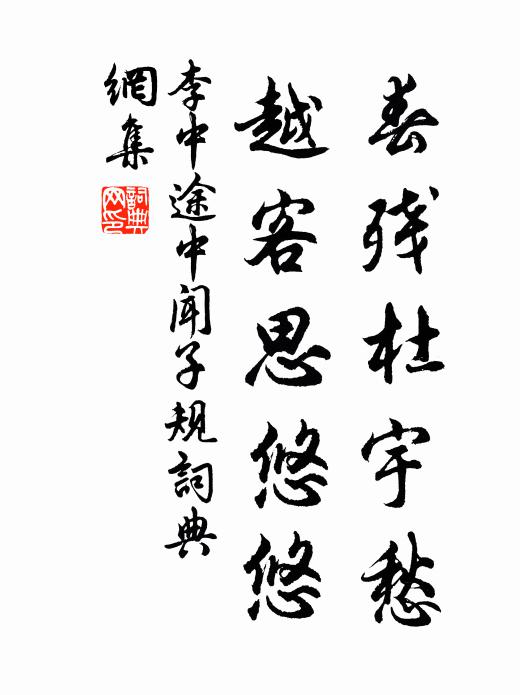 春残杜宇愁
越客思悠悠
李中途中闻子規詞典
網集
詞典网印